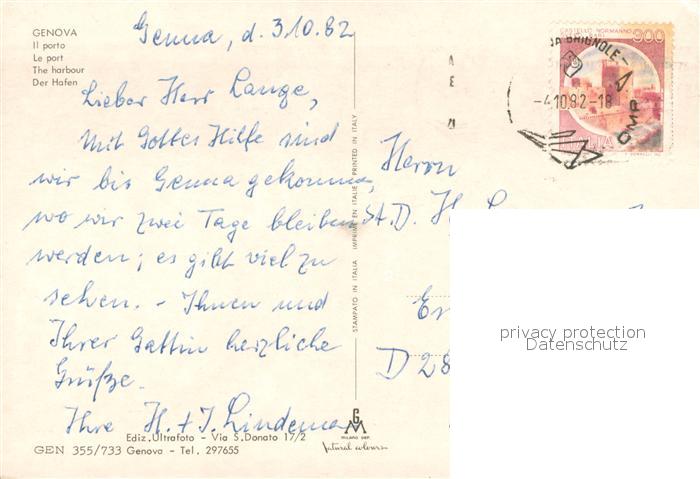 GENOVA
Il porto
Le port
The harbour
Der Hafen
Genua, d. 3.10.82
Lieber Herr Lange,
Mit Gottes Hilfe sind
wir bis Genua gekommen,
wo wir zwei Tage bleiben
werden; es gibt viel zu
sehen. – Ihnen und
Ihrer Gattin herzliche
Grüße.
Ihre H. + I. Lindema
Ediz. Ultrafoto - Via S. Donato 17/2
GEN 355/733 Genova - Tel. 297655
STAMPATO IN ITALIA IMPRIMÉ EN ITALIE PRINTED IN ITALY
GM
MILANO DEP.
Natural colours
CASTELLO NORMANNO
900
BRIGNOLE
-4.10.82-18
Herrn
St.D. H.
D 28
privacy protection
Datenschutz